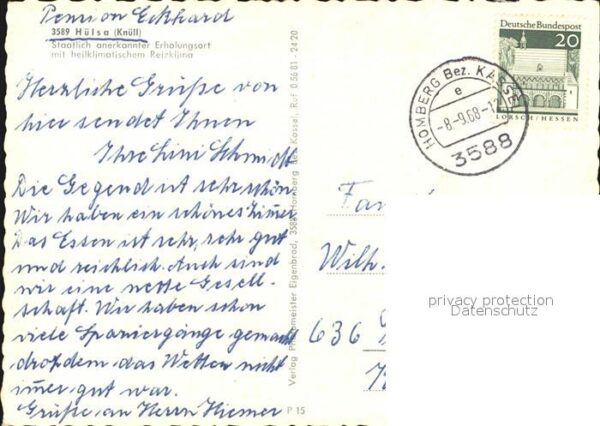 Pension Eckhard
3589 Hülsa (Knüll)
Staatlich anerkannter Erholungsort
mit heilklimatischem Reizklima
Herzliche Grüße von
hier sendet Ihnen
Ihre Lini Schmidt
Die Gegend ist sehr schön
Wir haben ein schönes Zimer
Das Essen ist sehr, sehr gut
und reichlich. Auch sind
wir eine nette Gesell-
schaft. Wir haben schon
viele Spaniergänge gemacht
drotzdem das Wetter nicht
imer gut war.
Grüße an Herrn Hiemer
Verlag Photomeister Eigenbrod, 3588 Homberg Bez. Kassel, Ruf 05681-2420
P 15
Deutsche Bundespost
20
LORSCH/HESSEN
HOMBERG Bez. KASSEL
e
-8.-9.68-1
3588
Fa
Wilh.
636
privacy protection
Datenschutz